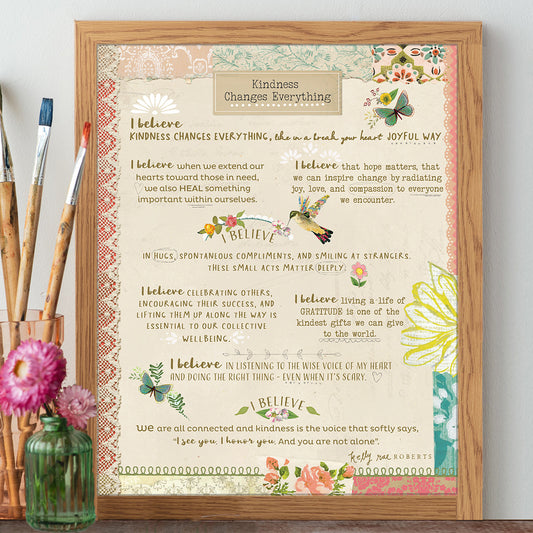 Kindness
Changes Everything
I believe
KINDNESS CHANGES EVERYTHING, like in a break your heart JOYFUL WAY
I believe when we extend our
hearts toward those in need,
we also HEAL something
important within ourselves.
I believe that hope matters, that
we can inspire change by radiating
joy, love, and compassion to everyone
we encounter.
I BELIEVE
IN HUGS, SPONTANEOUS COMPLIMENTS, AND SMILING AT STRANGERS.
THESE SMALL ACTS MATTER DEEPLY.
I believe CELEBRATING OTHERS,
ENCOURAGING THEIR SUCCESS, AND
LIFTING THEM UP ALONG THE WAY IS
ESSENTIAL TO OUR COLLECTIVE
WELLBEING.
I believe living a life of
GRATITUDE is one of the
kindest gifts we can give
to the world.
I believe IN LISTENING TO THE WISE VOICE OF MY HEART
AND DOING THE RIGHT THING - EVEN WHEN IT'S SCARY.
I BELIEVE
we are all connected and kindness is the voice that softly says,
"I see you, I honor you. And you are not alone".
kelly rae ROBERTS